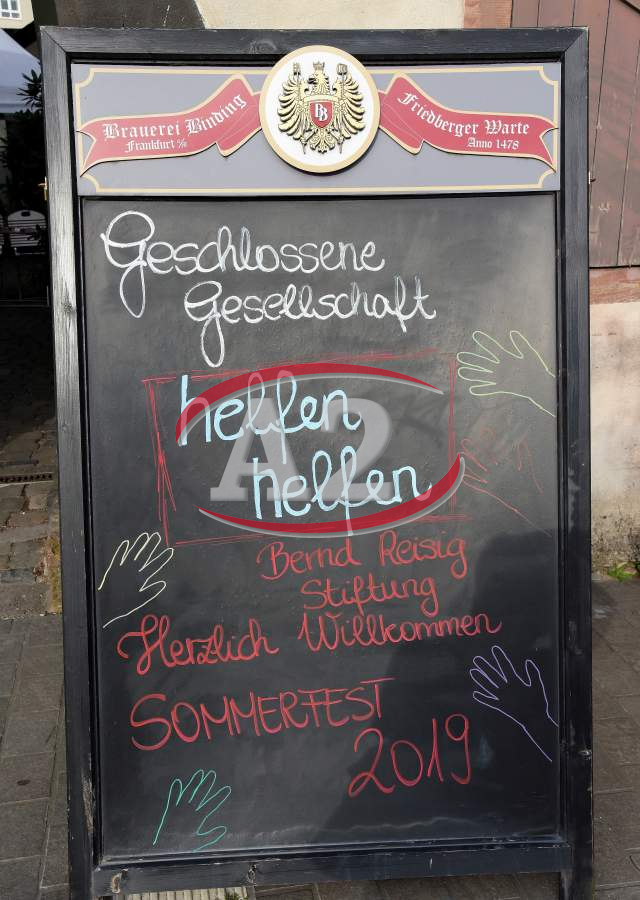 Brauerei Binding
Frankfurt a/M
BB
Friedberger Warte
Anno 1478
Geschlossene
Gesellschaft
helfen
A2
helfen
Bernd Reisig
Stiftung
Herzlich Willkommen
SOMMERFEST
2019